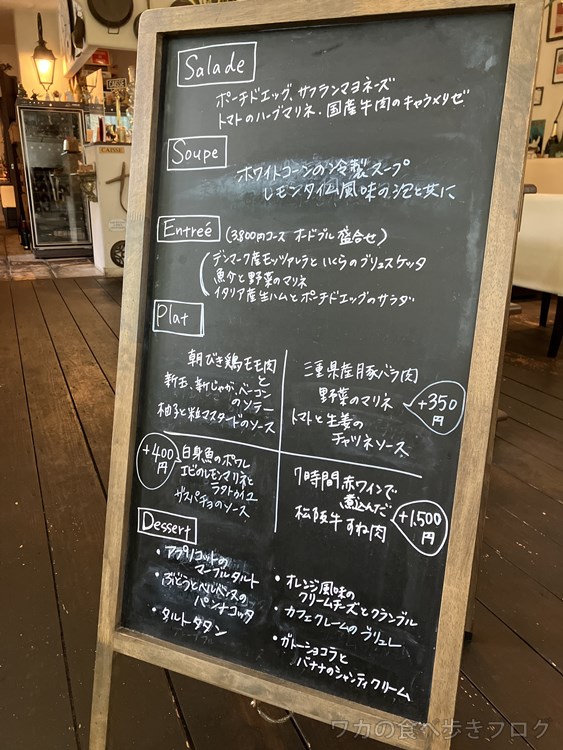 Salade
ポーチドエッグ、サフランマヨネーズ
トマトのハーブマリネ・国産牛肉のキャラメリゼ
Soupe
ホワイトコーンの冷製スープ
レモンタイム風味の泡と共に
Entreé (3,800円コース オードブル盛合せ)
デンマーク産モッツァレラといくらのブリュスケッタ
魚介と野菜のマリネ
イタリア産生ハムとポーチドエッグのサラダ
Plat
朝びき鶏モモ肉
と
新玉、新じゃが、ベーコン
のソテー
柚子と粒マスタードのソース
三重県産豚バラ肉
野菜のマリネ
トマトと生姜の
チャツネソース
+350
円
+400
円
白身魚のポワレ
エビのレモンマリネと
ラタトゥイユ
ガスパチョのソース
7時間赤ワインで
煮込んだ
松阪牛すね肉
+1,500
円
Dessert
・アプリコットの
マーブルタルト
・ぶどうとベルベンヌの
パンナコッタ
・タルトタタン
・オレンジ風味の
クリームチーズとクランブル
・カフェクレームのブリュレ
・ガトーショコラと
バナナのシャンティクリーム
CAISSE
ワカの食べ歩きブログ